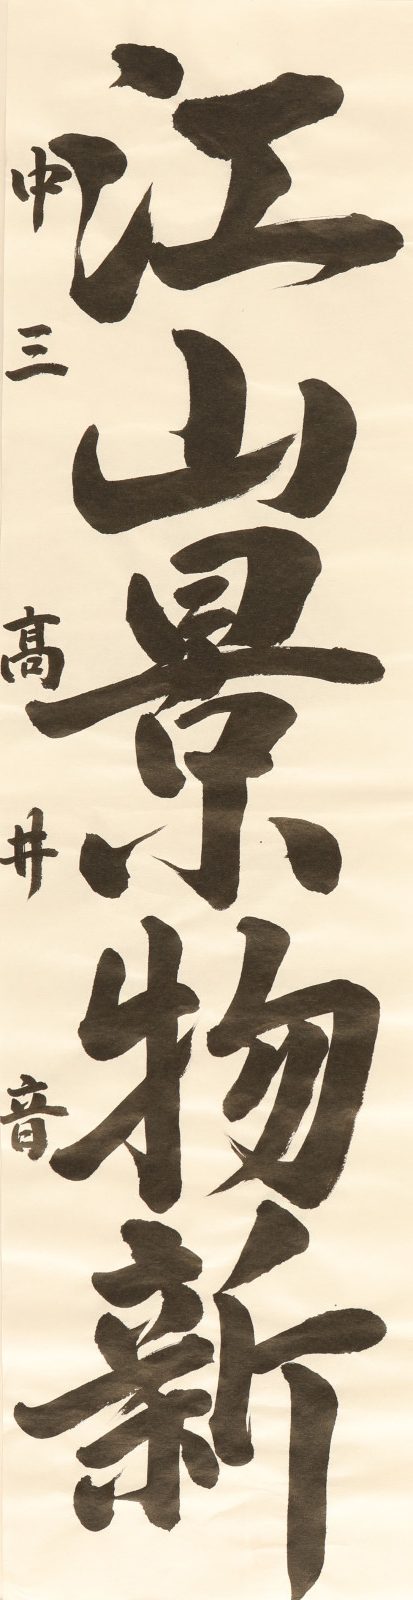 江山景物新
中三 髙井音